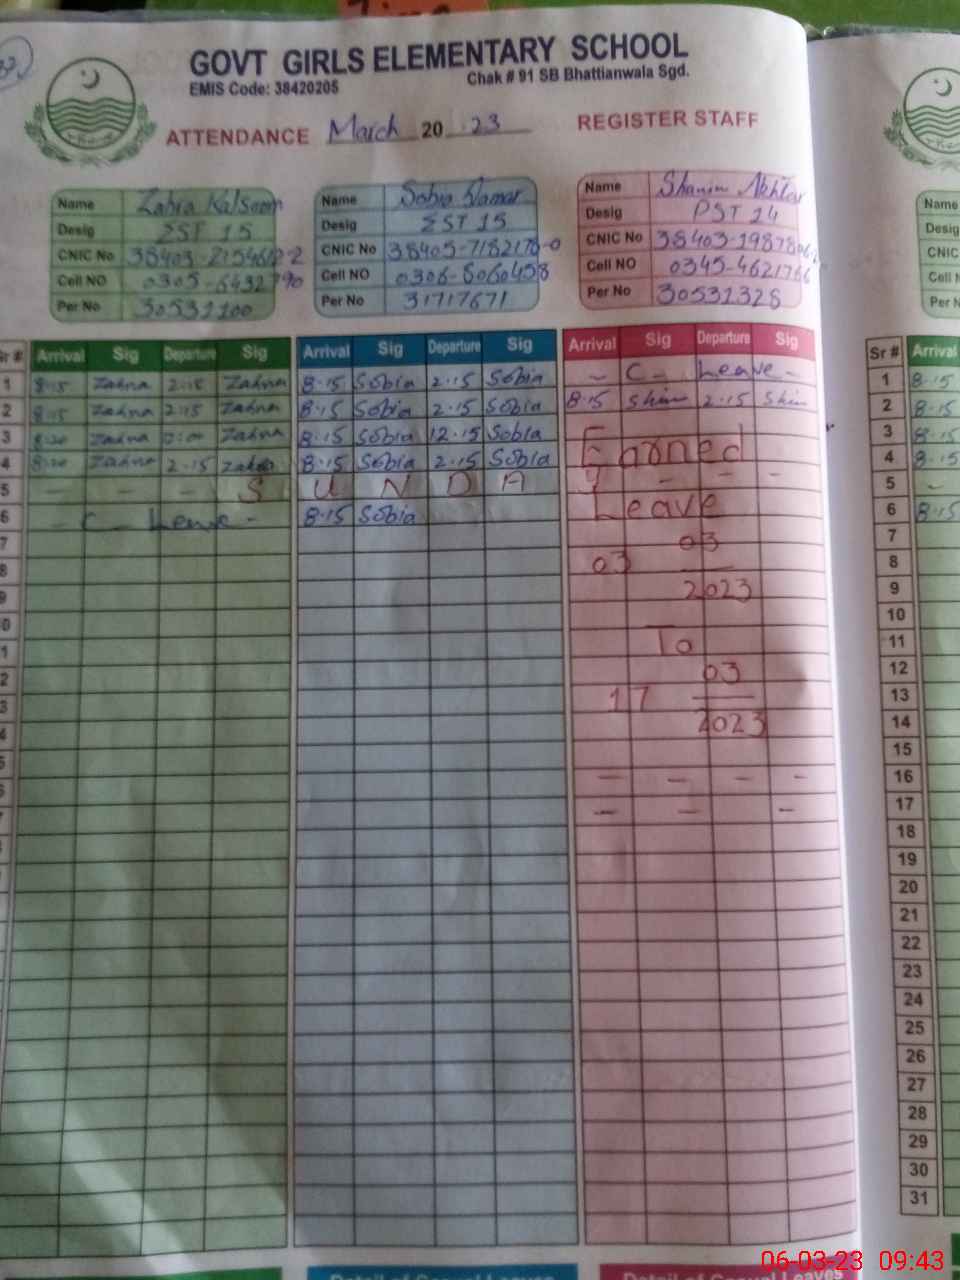 GOVT GIRLS ELEMENTARY SCHOOL
EMIS Code: 38420205 Chak # 91 SB Bhattianwala Sgd.
ATTENDANCE March 20 23 REGISTER STAFF
Name Zahra Kalsoom
Desig EST 15
CNIC No
Cell NO 0305-6432790
Per No 30531100
Name Sobia Qamar
Desig EST 15
CNIC No 38405-7182178-0
Cell NO 0306-8060458
Per No 31717671
Name Shamim Akhtar
Desig PST 14
CNIC No
Cell NO 0345-4621766
Per No 30531328
Name
Desig
CNIC
Cell
Per N
Sr # Arrival Sig Departure Sig Arrival Sig Departure Sig Arrival Sig Departure Sig Sr # Arrival
1 8:15 Zahra 2:15 Zahra 8:15 Sobia 2:15 Sobia - C - Leave - 1 8:15
2 8:15 Zahra 2:15 Zahra 8:15 Sobia 2:15 Sobia 8:15 2:15 2 8:15
3 8:20 Zahra 12:00 Zahra 8:15 Sobia 12:15 Sobia Earned 3 8:15
4 8:20 Zahra 2:15 Zahra 8:15 Sobia 2:15 Sobia 4 8:15
5 - - - S U N D A Y - - - 5 -
6 C - Leave - 8:15 Sobia Leave 6 8:15
7 03 7
8 03 8
9 2023 9
10 10
11 To 11
12 03 12
13 17 13
14 2023 14
15
16
17
18
19
20
21
22
23
24
25
26
27
28
29
30
31
Detail of Casual Leaves Detail of Casual Leaves
06-03-23 09:43